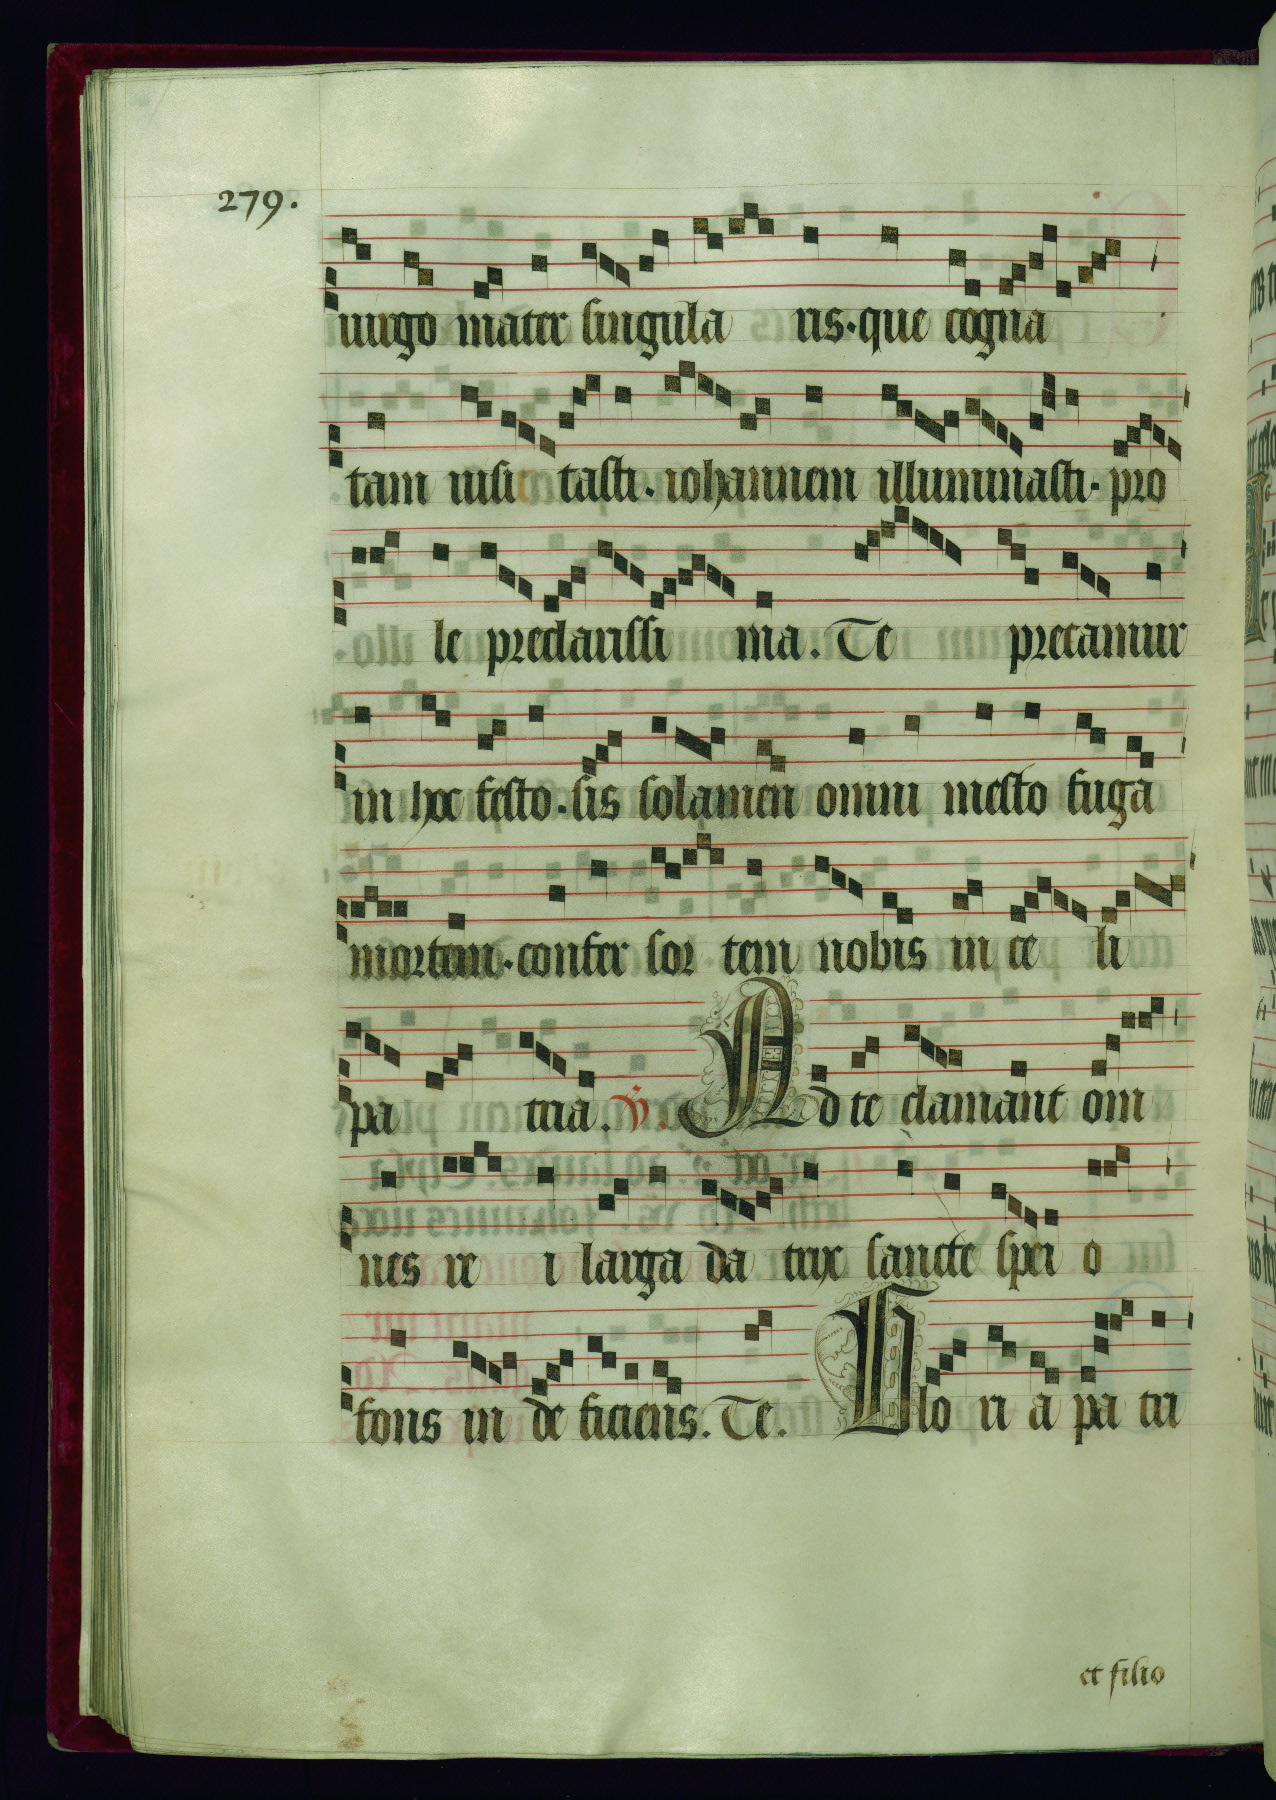 279.
uirgo mater singula ris. que cogna
tam uisi tasti. iohannem illuminasti. pro
le preclarissi ma. Te precamur
in hoc festo. sis solamen omni mesto fuga
mortem. confer sor tem nobis in ce li
pa tria. v. Ad te clamant om
nes re i larga da trix sancte spei o
fons in de ficiens. Te. Glo ri a pa tri
et filio